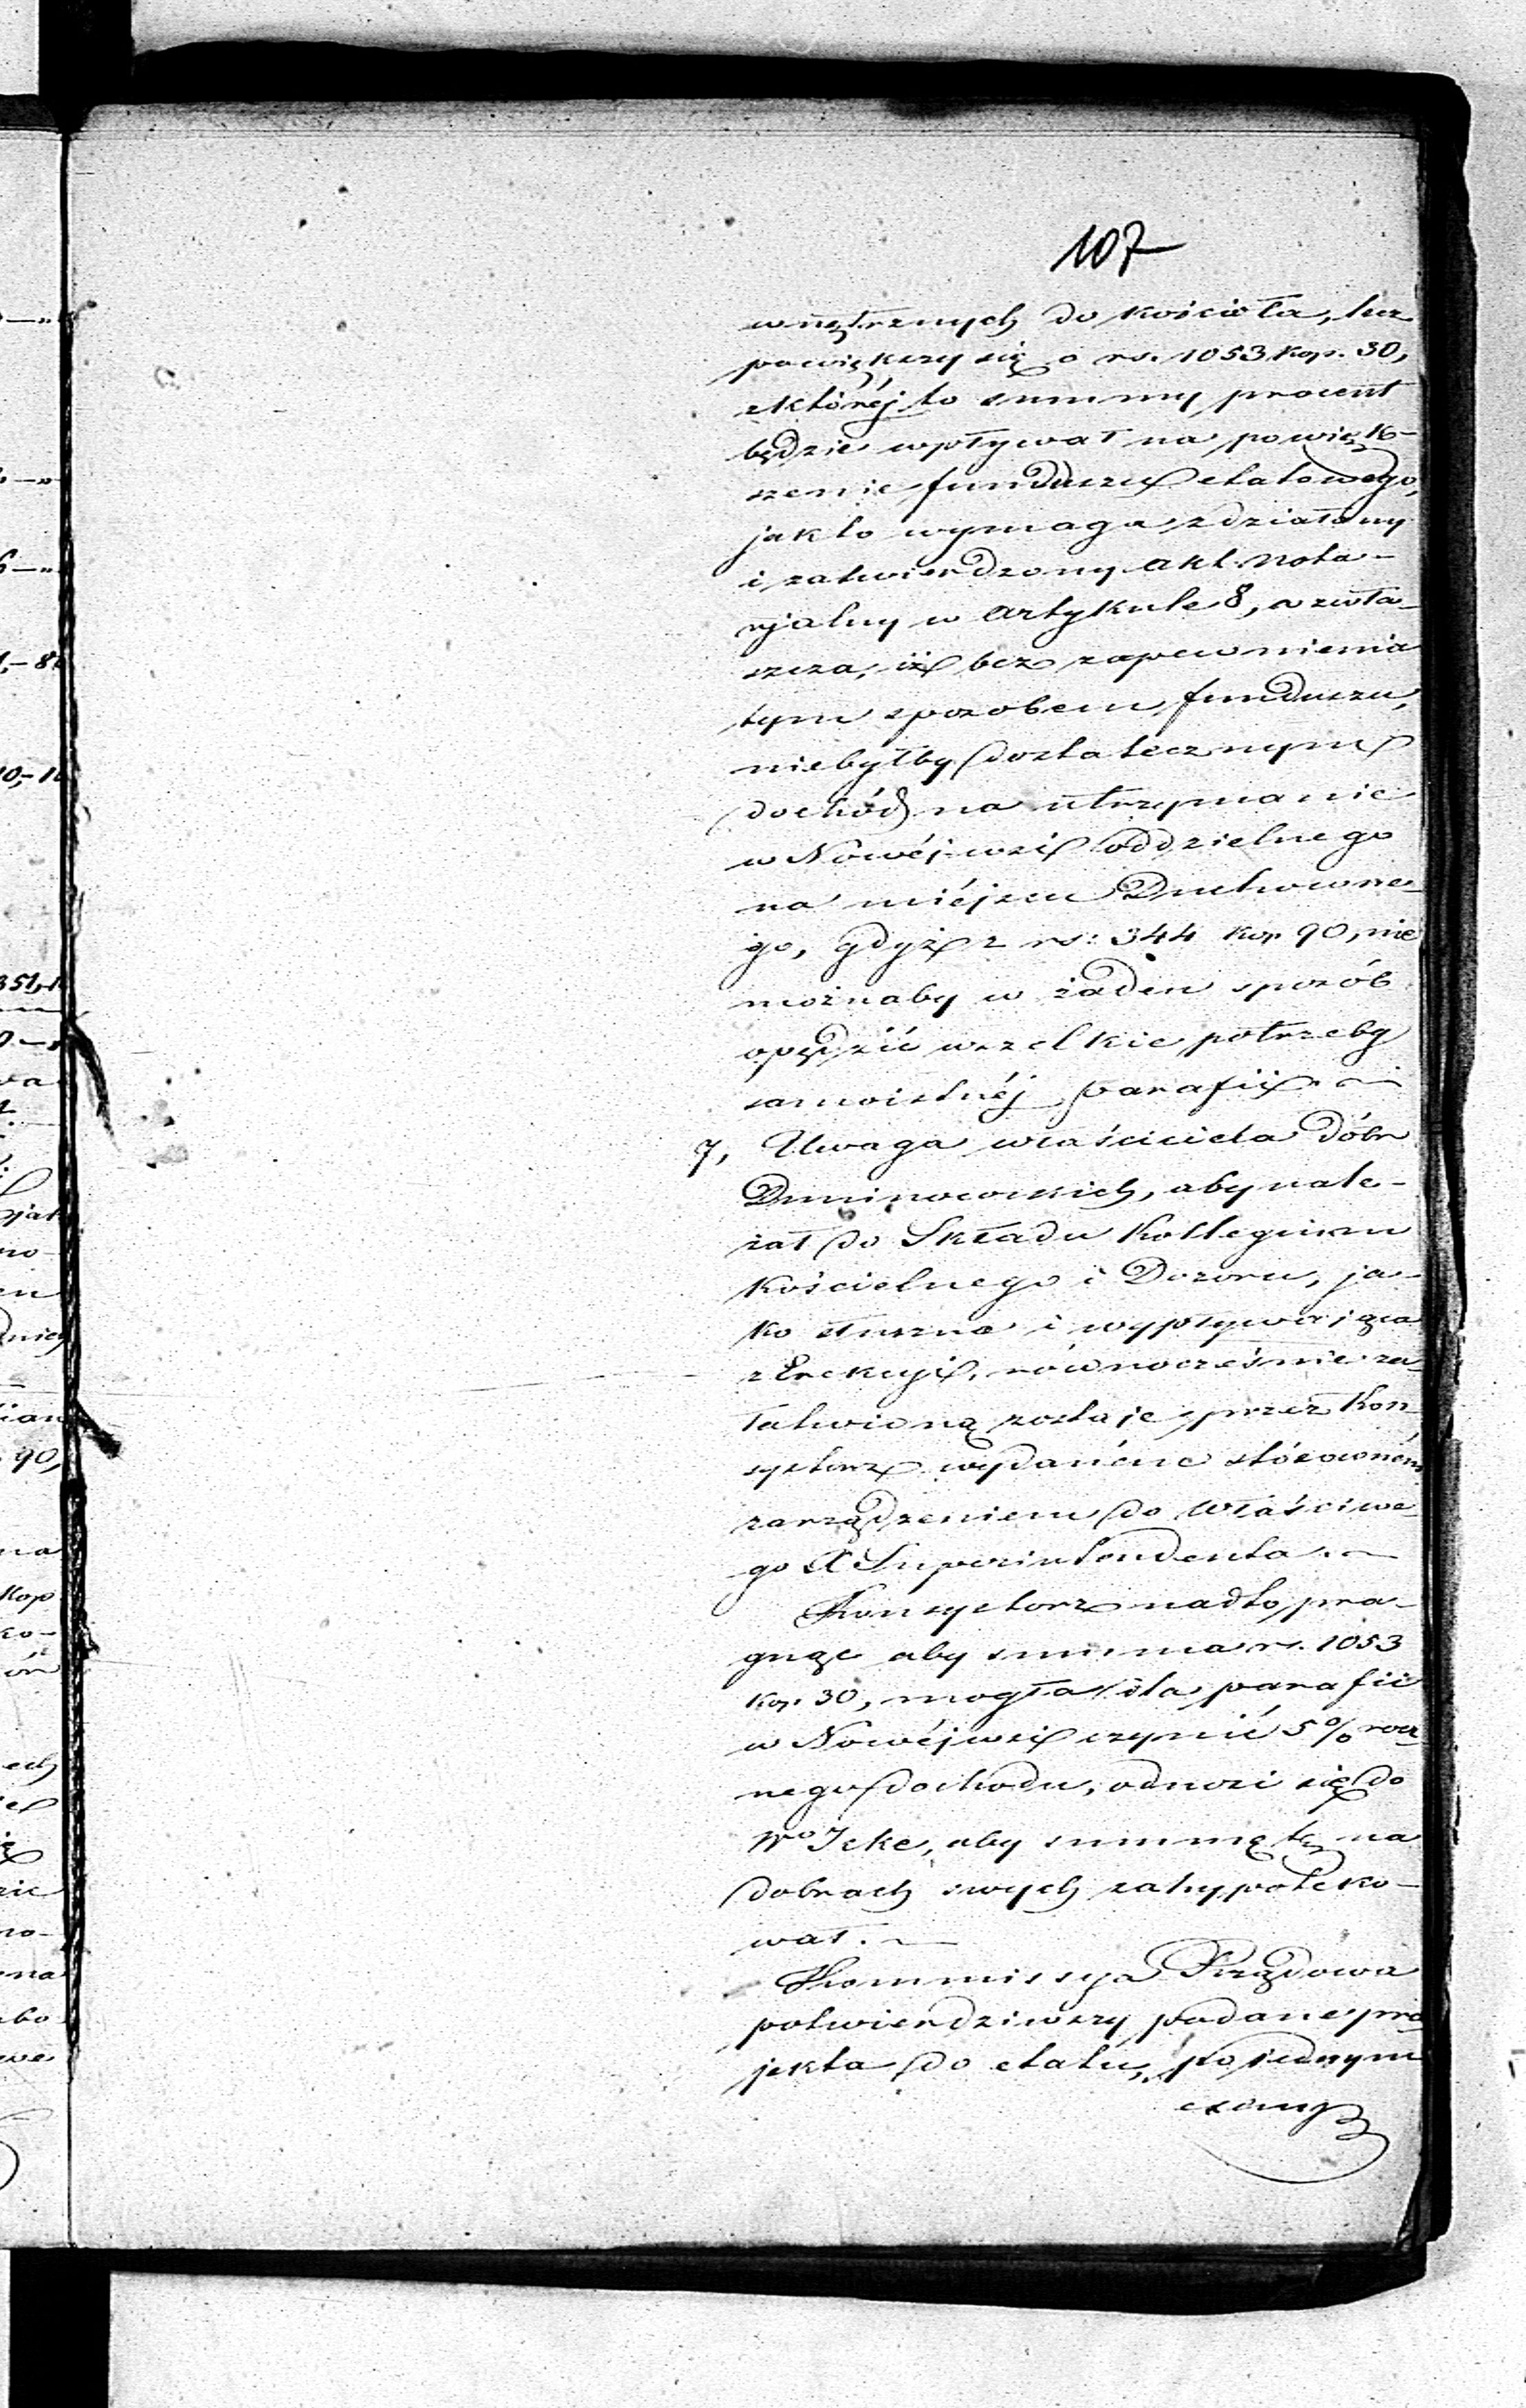 107
wnętrznych do kościoła, lecz
powiększy się o rs. 1053 kop. 30,
z której to summy procent
będzie wpływał na powięk-
szenie funduszu etatowego,
jak to wymaga zdziałany
i zatwierdzony akt nota-
rjalny w Artykule 8, a zwła-
szcza, iż bez zapewnienia
tym sposobem funduszu,
niebyłby dostatecznym
dochód na utrzymanie
w Nowéj wsi oddzielnego
na miéjscu Duchowne-
go, gdyż z rs: 344 kop 90, nie
możnaby w żaden sposób
opędzić wszelkie potrzeby
samoistnéj parafii. —
7, Uwaga właściciela dóbr
Duninowskich, aby nale-
żał do Składu Kollegium
Kościelnego i Dozoru, ja-
ko słuszna i wypływająca
z Erekcyi, równocześnie za-
łatwioną zostaje przez Kon-
systorz wydaném stósowném
zarządzeniem do właściwe-
go X Superintendenta. —
Konsystorz nadto pra-
gnąc aby summa rs. 1053
kop. 30, mogła dla parafii
w Nowéj wsi czynić 5% rocz-
nego dochodu, odnosi się do
Wo Jeke, aby summę tę na
dobrach swych zahypoteko-
wał. —
Kommissya Rządowa
potwierdziwszy podane pro-
jekta do etatu, po jednym